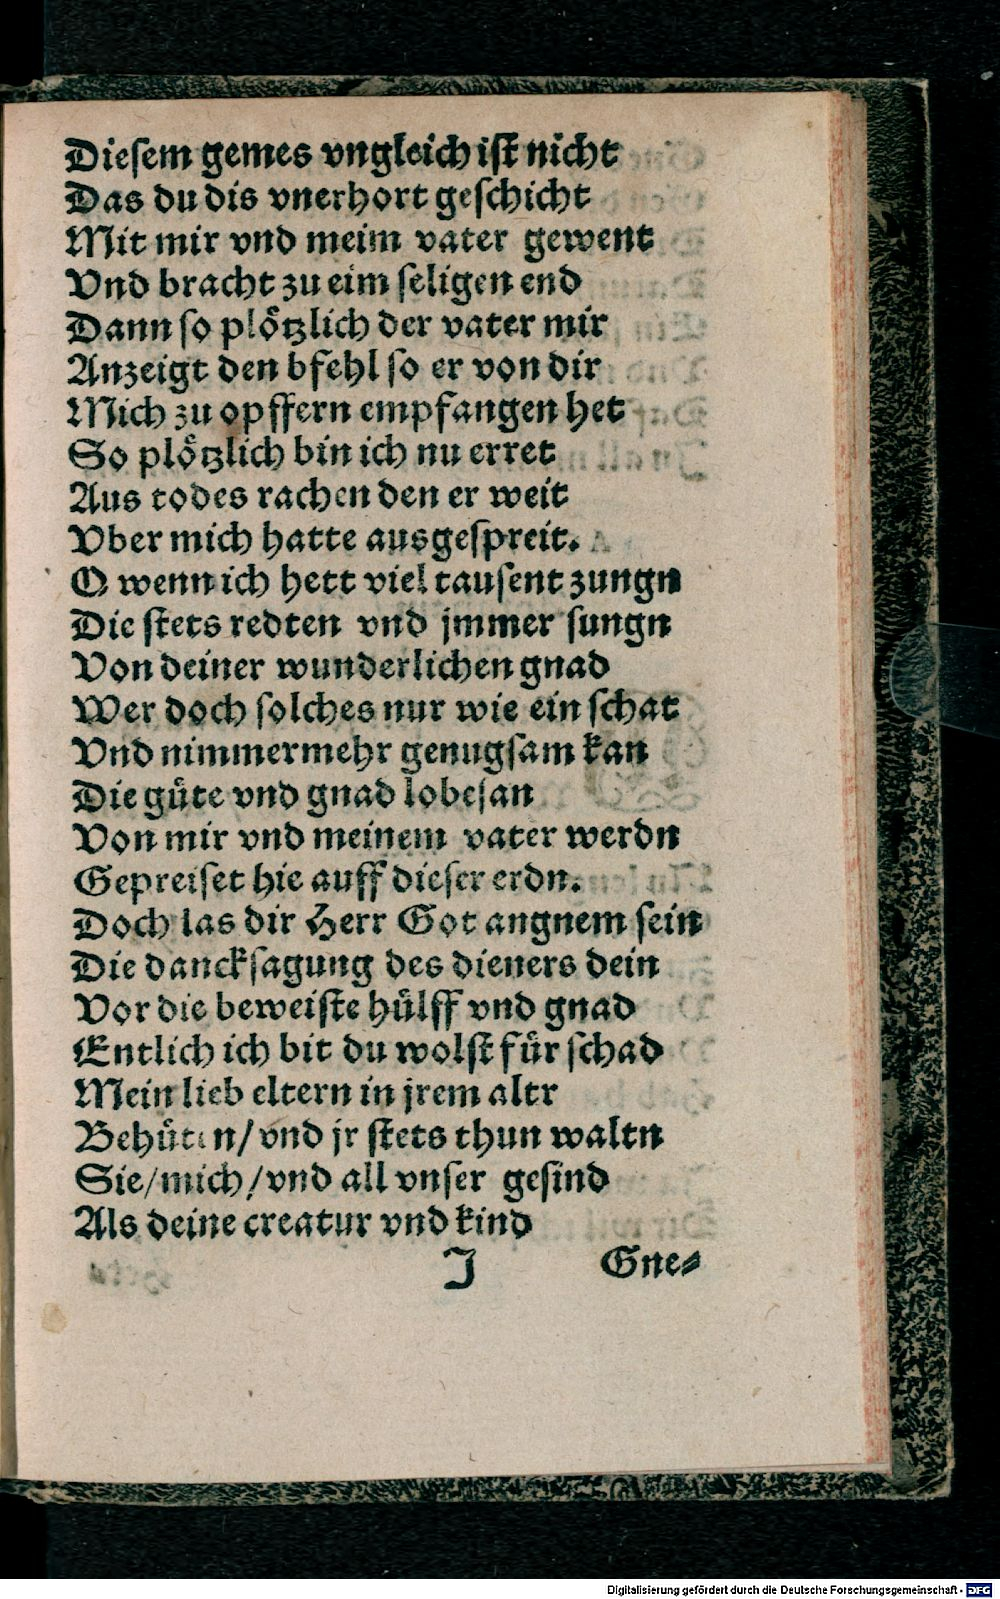 Diesem gemes vngleich ist nicht
Das du dis vnerhort geschicht
Mit mir vnd meim vater gewent
Vnd bracht zu eim seligen end
Dann so plötzlich der vater mir
Anzeigt den bfehl so er von dir
Mich zu opffern empfangen het
So plötzlich bin ich nu erret
Aus todes rachen den er weit
Vber mich hatte ausgespreit.
O wenn ich hett viel tausent zungn
Die stets redten vnd jmmer sungn
Von deiner wunderlichen gnad
Wer doch solches nur wie ein schat
Vnd nimmermehr genugsam kan
Die güte vnd gnad lobesan
Von mir vnd meinem vater werdn
Gepreiset hie auff dieser erdn.
Doch las dir Herr Got angnem sein
Die dancksagung des dieners dein
Vor die beweiste hülff vnd gnad
Entlich ich bit du wolst für schad
Mein lieb eltern in jrem altr
Behüten/vnd jr stets thun waltn
Sie/mich/vnd all vnser gesind
Als deine creatur vnd kind
J Gne-
Digitalisierung gefördert durch die Deutsche Forschungsgemeinschaft - DFG